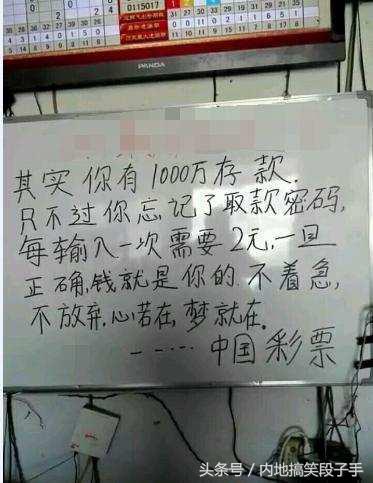 0115017
PANDA
其实你有1000万存款.
只不过你忘记了取款密码,
每输入一次需要2元,一旦
正确,钱就是你的.不着急,
不放弃.心若在,梦就在.
-----中国彩票
头条号/内地搞笑段子手